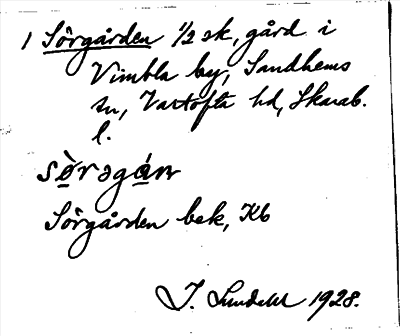 1 Sörgården 1/2 sk, gård i
Vimbla by, Sandhems
sn, Vartofta hd, Skarab.
l.
sö̀rəgá̱n
Sörgården bek, Kb
J. Lundahl 1928.